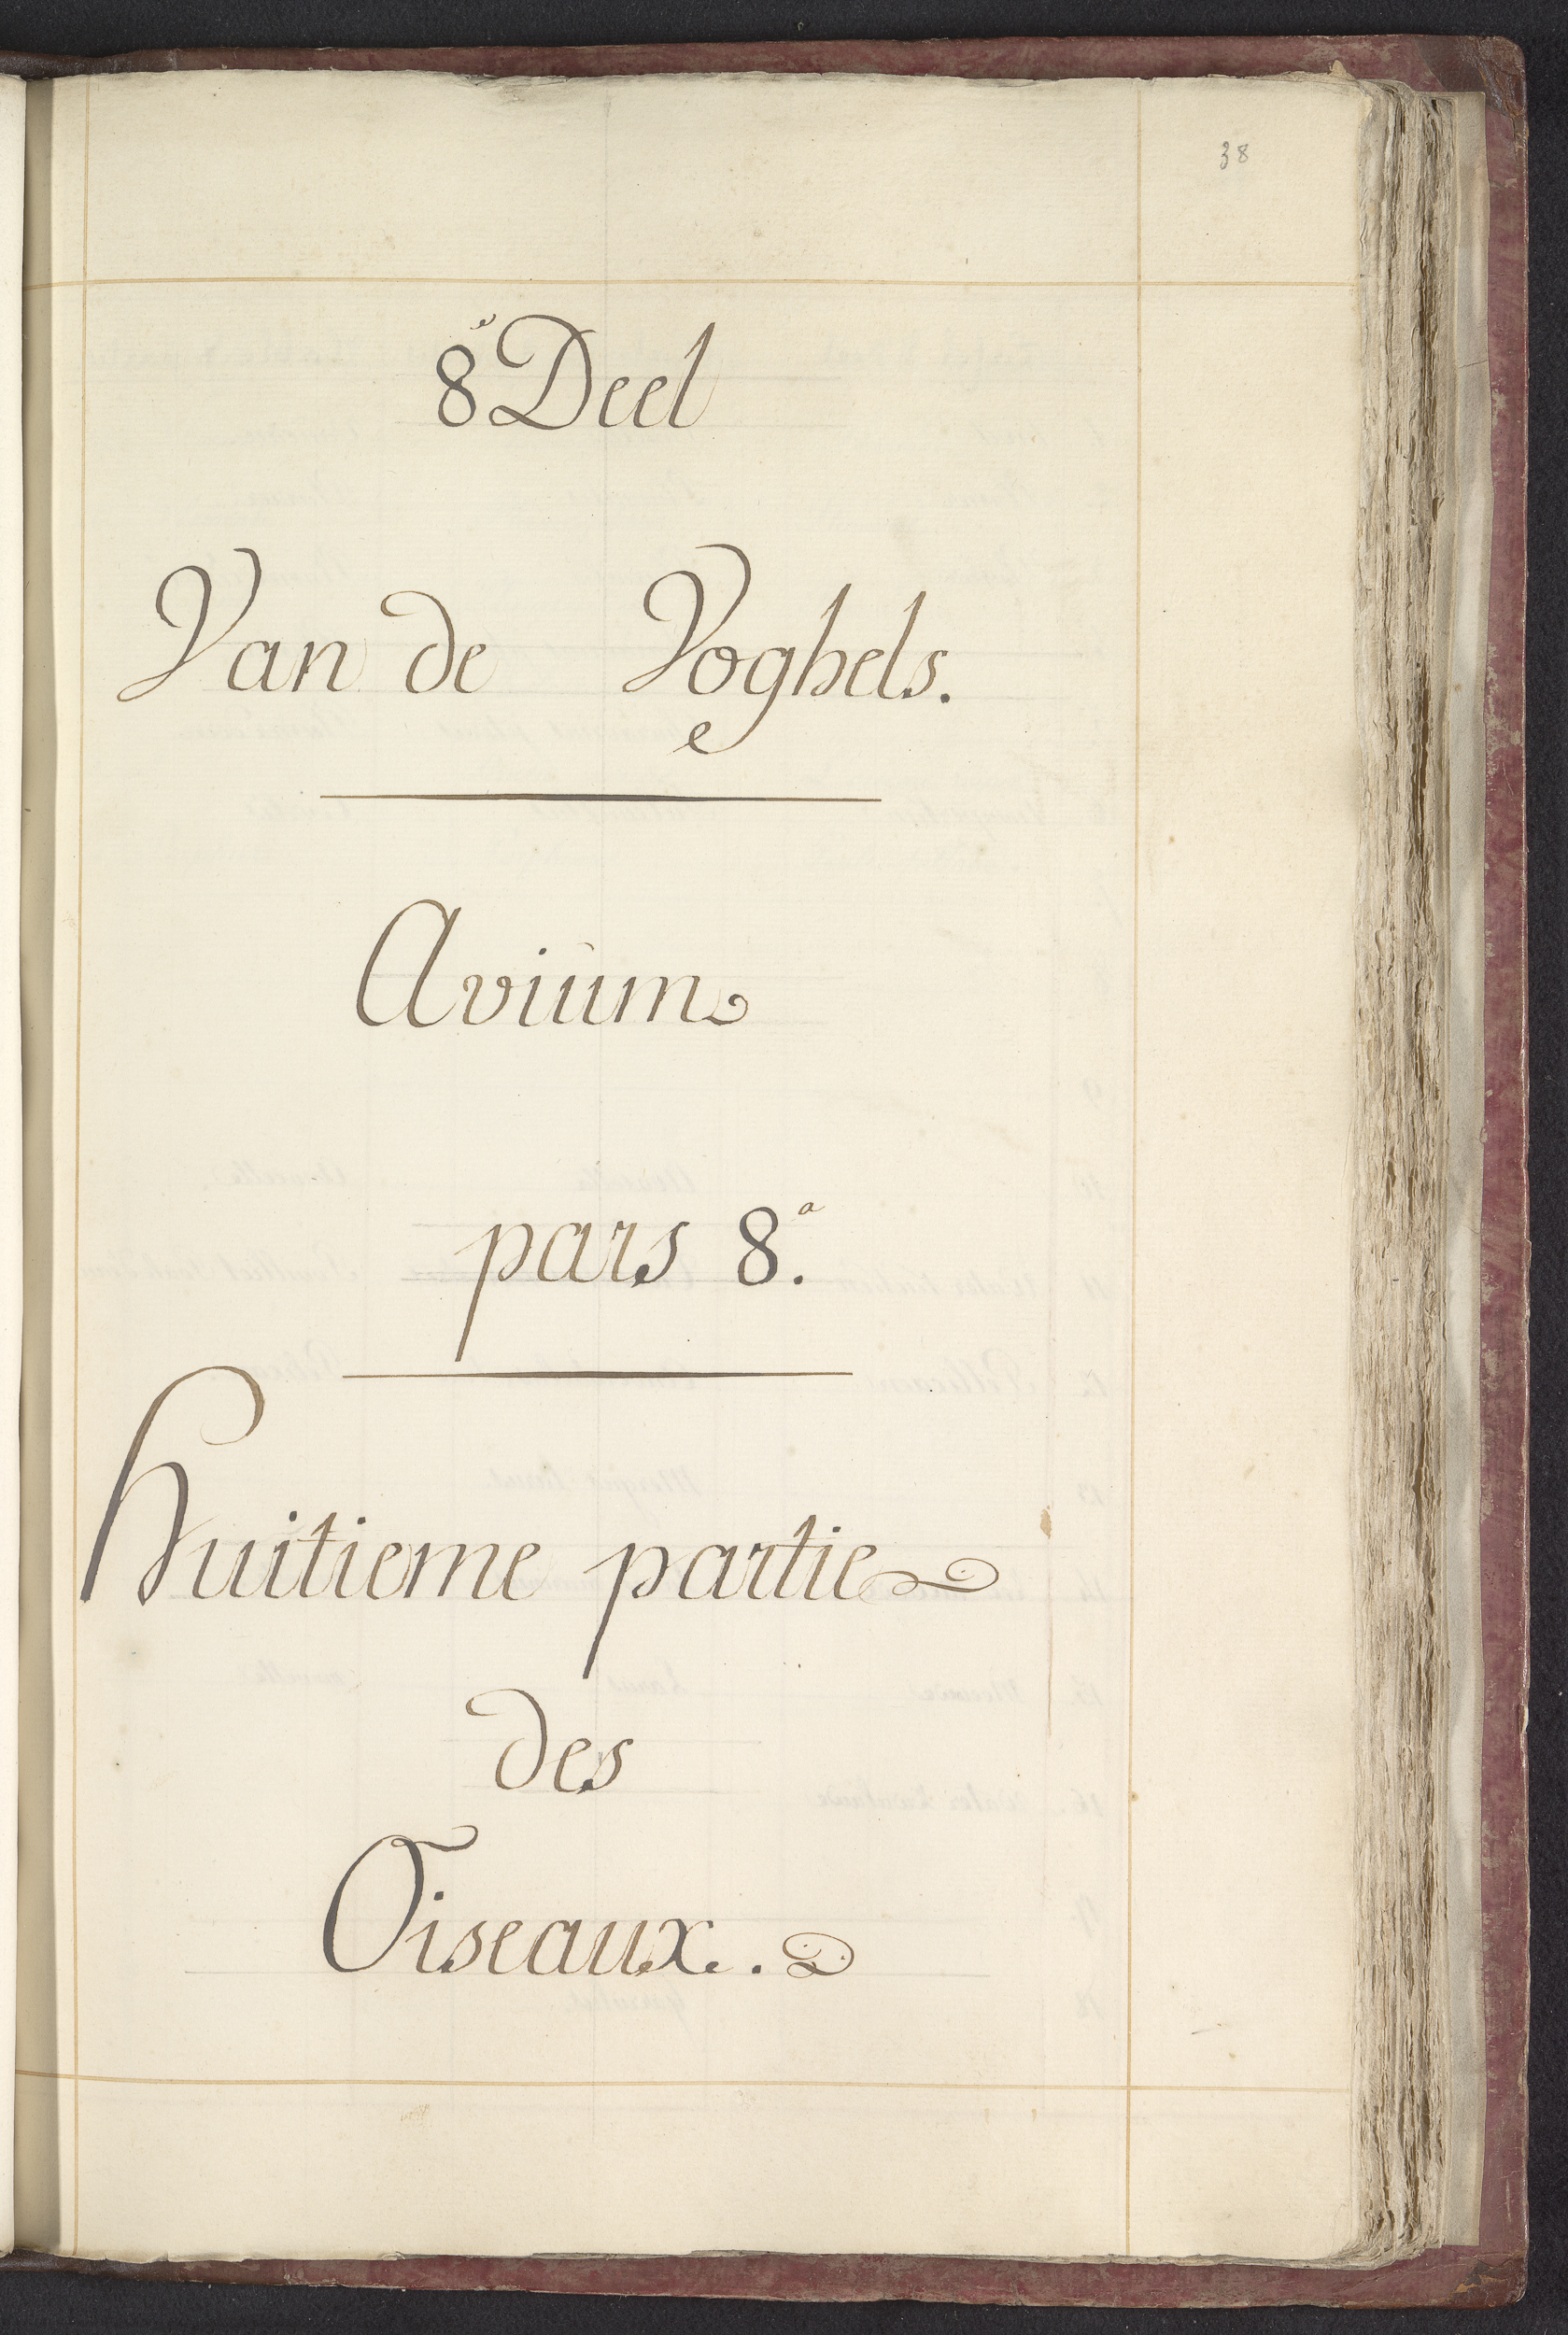 38
8e Deel
Van de Voghels.
Avium
pars 8.a
huitieme partie
des
Oiseaux.